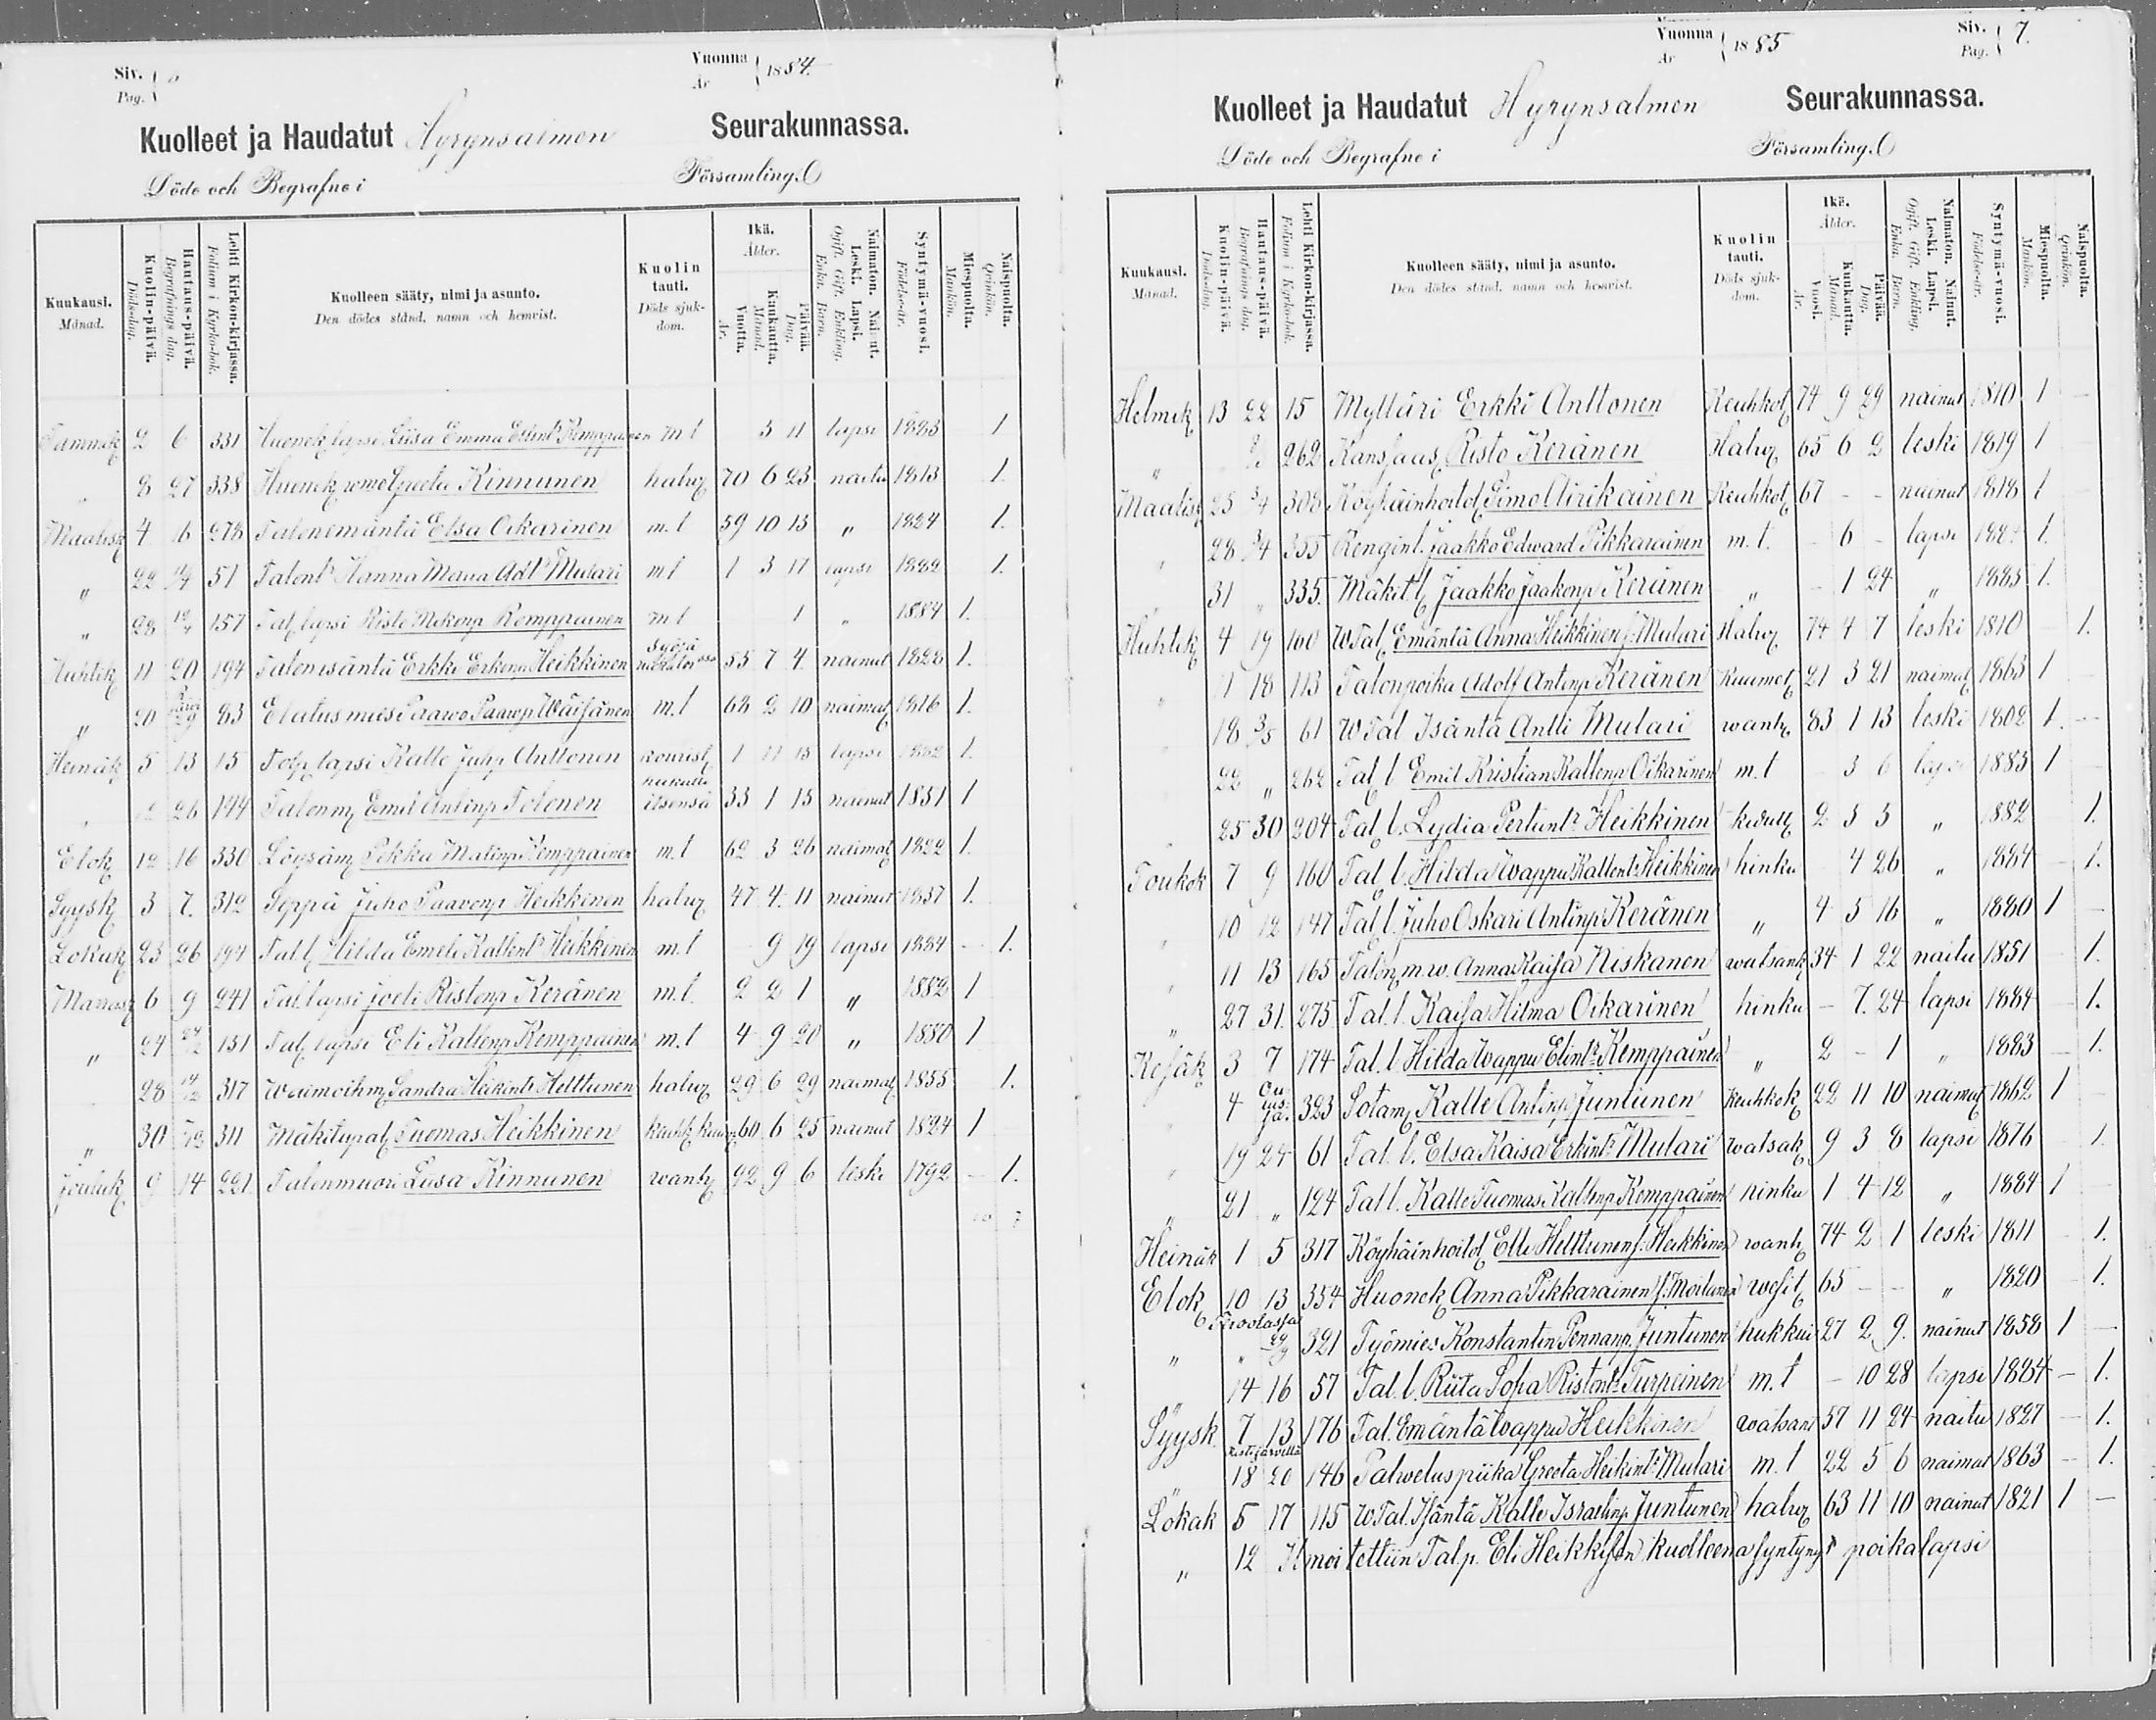 Siv.
Pag.
Vuonna
År
1884.
Kuolleet ja Haudatut Hyrynsalmen Seurakunnassa.
Döde och Begrafne i Församling.
Kuukausi. Månad.
Kuolin-päivä. Dödsdag.
Hautaus-päivä. Begrafnings dag.
Lehti Kirkon-kirjassa. Folium i Kyrko-bok.
Kuolleen sääty, nimi ja asunto. Den dödes stånd, namn och hemvist.
Kuolin tauti. Döds sjukdom.
Ikä. Ålder.
Vuotta. År.
Kuukautta. Månad.
Päivää. Dag.
Naimaton. Nainut. Leski. Lapsi. Ogift. Gift. Enkling. Enka. Barn.
Syntymä-vuosi. Födelse-år.
Miespuolta. Mankön.
Naispuolta. Qvinkön.
Tammik 2 6 331 Huonek lapsi Liisa Emma Kemppainen m t 3 11 lapsi 1883 1
" 8 27 338 Huonek Greeta Kinnunen halv 70 6 23 naitu 1813 1.
Maalisk 4 16 278 Talonemäntä Elsa Oikarinen m. t 59 10 13 " 1824 1.
" 22 51 Talont Hanna Maria Adt Mulari m t 1 3 17 lapsi 1882 1.
" 28 157 Tal lapsi Risto Mikonp Kemppainen m t 1 " 1884 1.
Huhtik 11 20 194 Talonisäntä Erkki Erkinp Heikkinen syöjä 55 7 4 nainut 1828 1.
" 20 83 Elatusmies Paavo Paavop Wäisänen m. t 68 2 10 naimat 1816 1.
Heinäk 5 13 15 lapsi Kalle Juhp Anttonen kourist 1 11 15 lapsi 1882 1.
" 26 144 Talonm Emil Antinp Tolonen hukutti itsensä 33 1 15 nainut 1851 1
Elok 12 16 330 Löysäm Pekka Matinp Kemppainen m. t 62 3 26 naimat 1822 1.
Syysk 3 7. 312 Seppä Juho Paavonp Heikkinen halv 47 4 11 nainut 1837 1.
Lokak 23 26 194 Tal l Hilda Emeli Kallent Heikkinen m. t 9 19 lapsi 1884 – 1.
Marrask 6 9 241 Tal. lapsi Joeli Ristonp Keränen m. t. 2 2 1 " 1882 1
" 24 151 Tal lapsi Eli Kallenp Kemppainen m. t 4 9 20 " 1880 1
28 317 Waimoihm Sandra Heikint Helttunen halv 29 6 29 naimat 1855 1.
" 30 311 Mäkitupal Tuomas Heikkinen 60 6 25 nainut 1824 1
Jouluk 9 14 221 Talonmuori Liisa Kinnunen wanh 92 9 6 leski 1792 – 1.
Siv.
Pag.
7.
Vuonna
År
1885
Kuolleet ja Haudatut Hyrynsalmen Seurakunnassa.
Döde och Begrafne i Församling.
Kuukausi. Månad.
Kuolin-päivä. Dödsdag.
Hautaus-päivä. Begrafnings dag.
Lehti Kirkon-kirjassa. Folium i Kyrko-bok.
Kuolleen sääty, nimi ja asunto. Den dödes stånd, namn och hemvist.
Kuolin tauti. Döds sjukdom.
Ikä. Ålder.
Vuosi. År.
Kuukautta. Månad.
Päivää. Dag.
Naimaton. Nainut. Leski. Lapsi. Ogift. Gift. Enkling. Enka. Barn.
Syntymä-vuosi. Födelse-år.
Miespuolta. Mankön.
Naispuolta. Qvinkön.
Helmik 13 22 15 Mylläri Erkki Anttonen Keuhkot 74 9 29 nainut 1810 1 –
" 262 Risto Keränen Halv 65 6 2 leski 1819 1
Maalisk 25 3/4 308 Köyhäinhoitol Simo Airikainen Keuhkot 67 – – nainut 1818 1
" 28 3/4 355 Rengin l. Jaakko Edward Pikkarainen m. t. – 6 – lapsi 1.
31 " 335. Mäkit l Jaakko Jaakonp Keränen " – 1 24 " 1885 1.
Huhtik 4 19 100 W Tal Emäntä Anna Heikkinen f. Mulari Halv 74 4 7 leski 1810 – 1.
" 11 18 113 Talonpoika Adolf Antinp Keränen Kuumet 21 3 21 naimat 1863 1
18 3/5 61 W Tal Isäntä Antti Mulari wanh 83 1 13 leski 1802 1 –
22 " 262 Tal l Emil Kristian Kallenp Oikarinen m. t 3 6 lapsi 1883 1
25 30 204 Tal l. Lydia Pertunt Heikkinen 2 3 3 " 1882 1.
Toukok 7 9 160 Tal l. Hilda Wappu Kallent Heikkinen hinku 4 26 " 1884 – 1.
" 10 12 147 Tal l. Juho Oskari Antinp Keränen " 4 3 16 " 1880 1 –
" 11 13 165 Talon m. w. Anna Kaisa Niskanen watsant 34 1 22 naitu 1851 1.
" 27 31. 275. Tal. l. Kaisa Hilma Oikarinen hinku – 7. 24 lapsi 1884 1.
Kesäk 3 7 174 Tal. l Hilda Wappu Elint Kemppainen " 2 – 1 " 1883 – 1.
4 323 Sotam Kalle Antinp Juntunen Keuhkok 22 11 10 naimat 1862 1 –
" 19 24 61 Tal. l. Elsa Kaisa Erkint Mulari watsak 9 3 8 lapsi 1876 1
" 21 " 124 Tal l. Kalle Tuomas Kallenp Kemppainen hinku 1 4 12 " 1884 1 –
Heinäk 1 5 317 Köyhäinhoitol Elli Helttunen f. Heikkinen wanh 74 2 1 leski 1811 1.
Elok 10 13 334 Huonek Anna Pikkarainen f. Moilanen wesit 65 – – " 1820 1.
" " 29/9 321 Työmies Konstantin Pennanp. Juntunen hukkui 27 2 9. nainut 1858 1 –
" 14 16 57 Tal. l. Riita Sofia Ristont Turpeinen m. t – 10 28 lapsi 1884 – 1.
Syysk 7 13 176 Tal. Emäntä Wappu Heikkinen watsant 57 11 24 naitu 1827 – 1.
Ristijärvellä
" 18 20 146 Palweluspiika Greeta Heikint Mulari m. t 22 5 6 naimat 1863 – 1.
Lokak 5 17 115 W Tal. Isäntä Kalle Israelinp Juntunen halv 63 11 10 nainut 1821 1 –
" 12 Ilmoitettiin Tal p. Eli Heikkisen kuolleena syntynyt poikalapsi